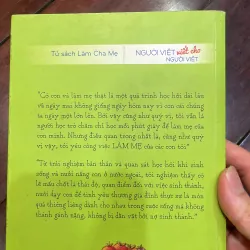 Tủ sách Làm Cha Mẹ
NGƯỜI VIỆT viết cho
NGƯỜI VIỆT
"Có con và làm mẹ thật là một quá trình học hỏi dài lâu
và ngày mai không giống ngày hôm nay vì con cái chúng
ta ngày một lớn lên. Bởi vậy cũng như quý vị, tôi vẫn là
người học trò chăm chỉ học mỗi phút giây để làm mẹ của
con mình. Nhưng điều quan trọng nhất, là cũng như quý
vị vậy, tôi yêu công việc LÀM MẸ của các con tôi"
"Từ trải nghiệm bản thân và quan sát học hỏi khi sinh
sống và nuôi nấng con ở nước ngoài, tôi nghiệm thấy có
lẽ mấu chốt là thái độ, quan điểm đối với việc sinh thành,
nuôi dạy con để tình yêu thương gia đình thực sự là món
quà thiêng liêng dành cho nhau trong cuộc sống mà không
thành gánh nặng, không bị dằn vặt bởi sự sinh thành."